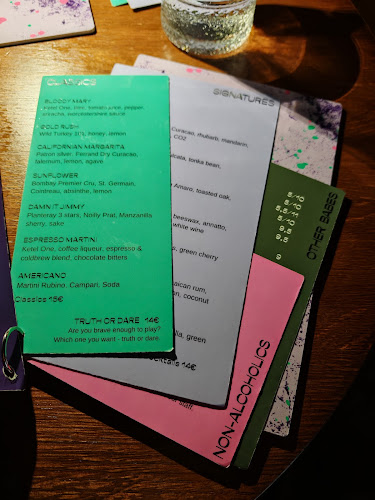 CLASSICS
BLOODY MARY
Ketel One, lime, tomato juice, pepper,
sriracha, worcestershire sauce
GOLD RUSH
Wild Turkey 101, honey, lemon
CALIFORNIAN MARGARITA
Patron silver, Pierand Dry Curacao,
falernum, lemon, agave
SUNFLOWER
Bombay Premier Cru, St. Germain,
Cointreau, absinthe, lemon
DAMN IT JIMMY
Planteray 3 stars, Noilly Prat, Manzanilla
sherry, sake
ESPRESSO MARTINI
Ketel One, coffee liqueur, espresso &
coldbrew blend, chocolate bitters
AMERICANO
Martini Rubino, Campari, Soda
Classics 15€
TRUTH OR DARE 14€
Are you brave enough to play?
Which one you want - truth or dare.
SIGNATURES
Curacao, rhubarb, mandarin,
CO2
tonka bean,
Amaro, toasted oak,
beeswax, annatto,
white wine
green cherry
rum,
coconut
green
14€
OTHER BABES
8/10
8/10
8,5/11
9,5
9,5
9
NON-ALCOHOLICS